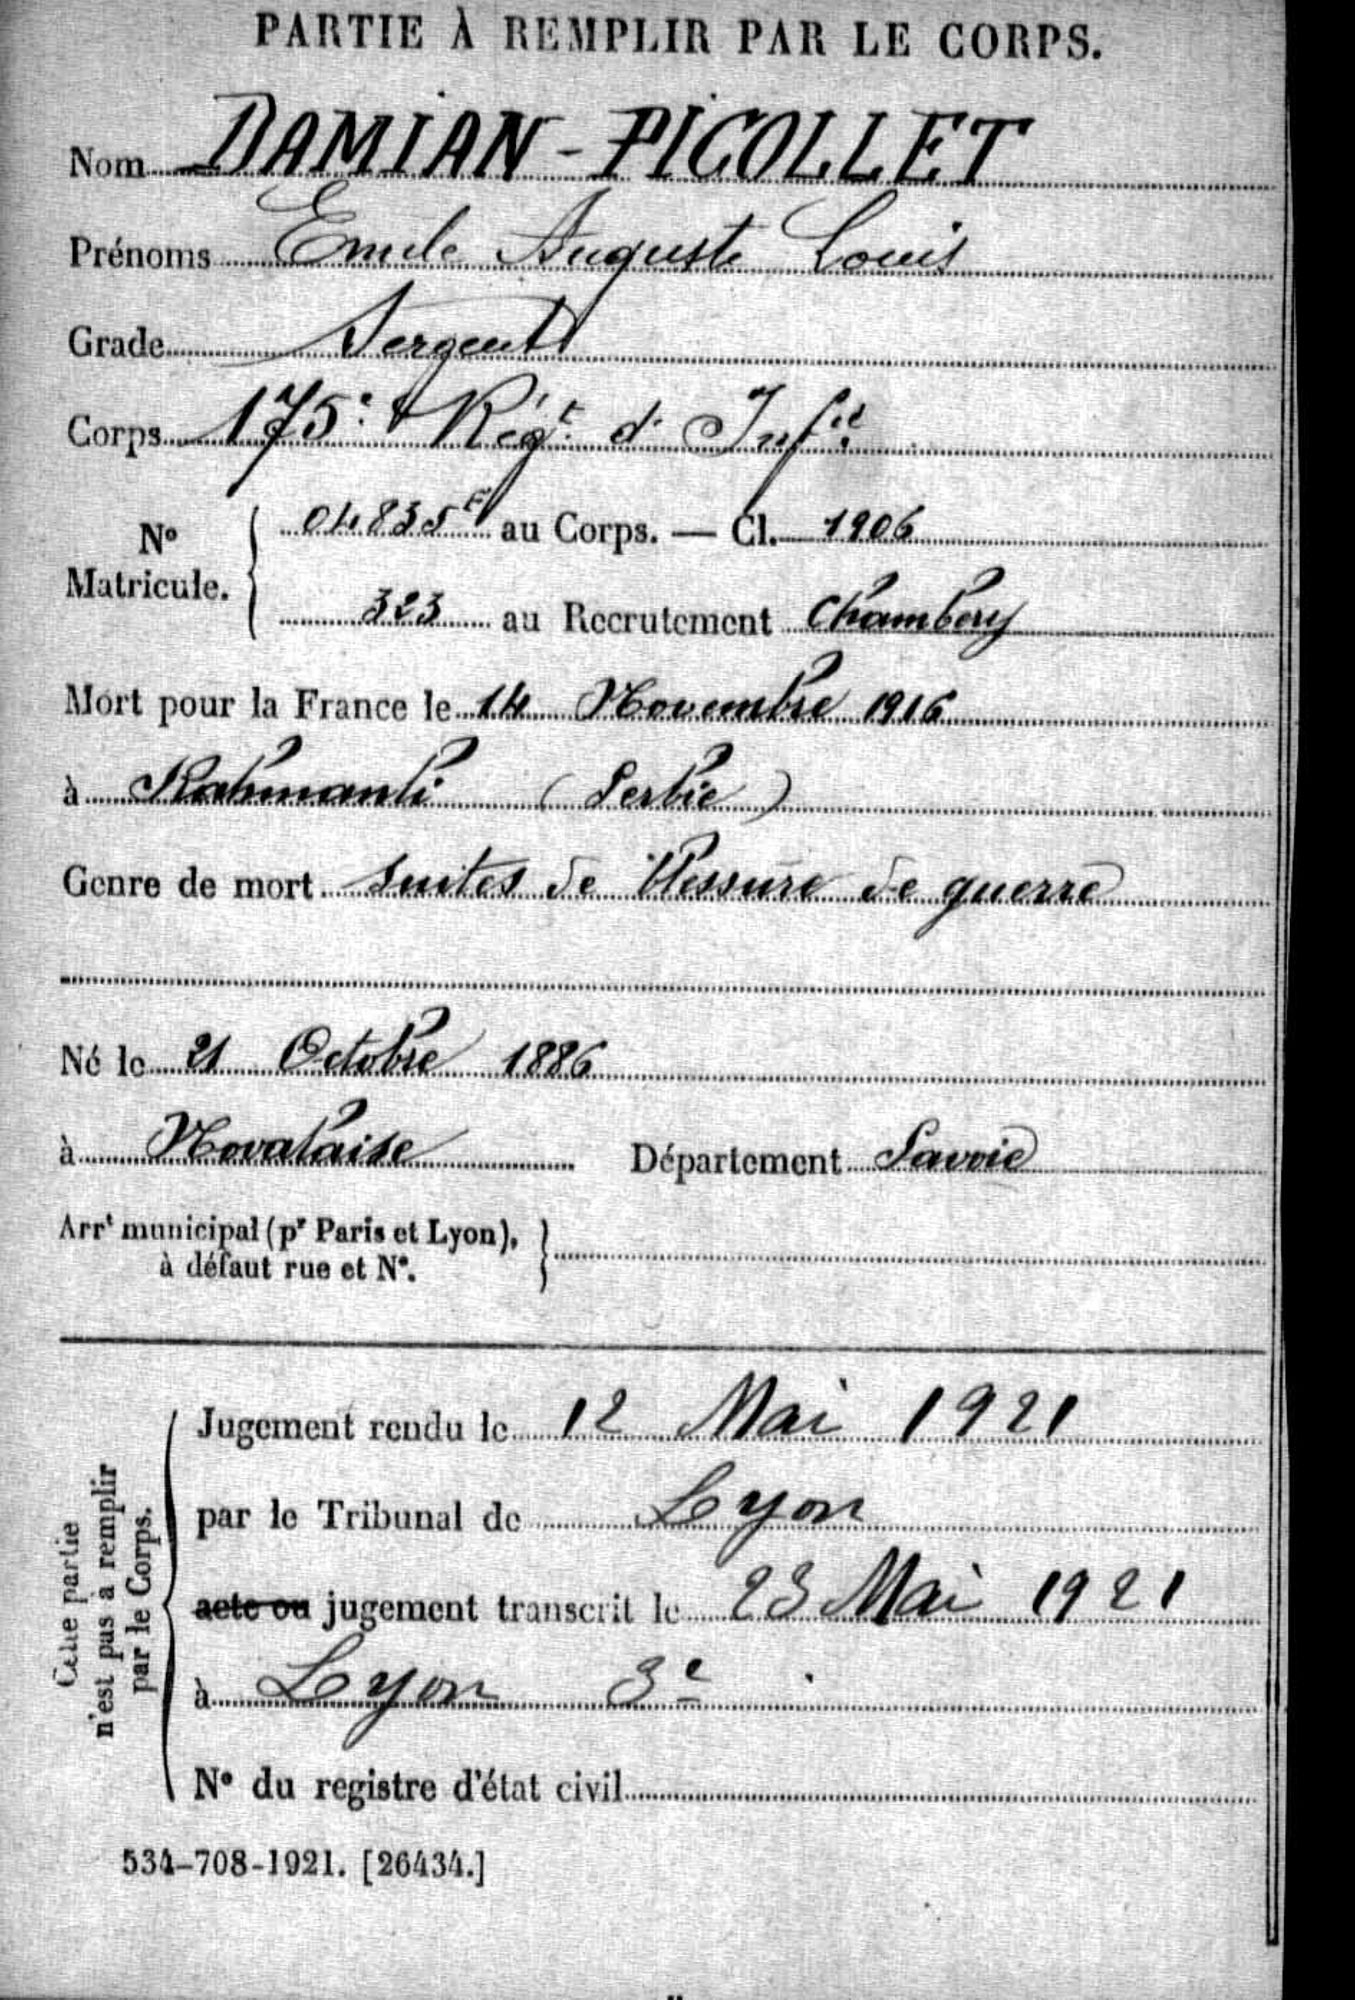 PARTIE À REMPLIR PAR LE CORPS.
Nom DAMIAN-PICOLLET
Prénoms Emile Auguste Louis
Grade Sergent
Corps 175e Régt d'Infie
No Matricule. { 04835 au Corps. — Cl. 1906
323 au Recrutement Chambery
Mort pour la France le 14 Novembre 1916
à Rahmanli (Serbie)
Genre de mort suites de blessure de guerre
Né le 21 Octobre 1886
à Novalaise Département Savoie
Arrt municipal (pr Paris et Lyon),
à défaut rue et No.
Cette partie
n'est pas à remplir
par le Corps.
Jugement rendu le 12 Mai 1921
par le Tribunal de Lyon
acte ou jugement transcrit le 23 Mai 1921
à Lyon 3e
No du registre d'état civil
534-708-1921. [26434.]